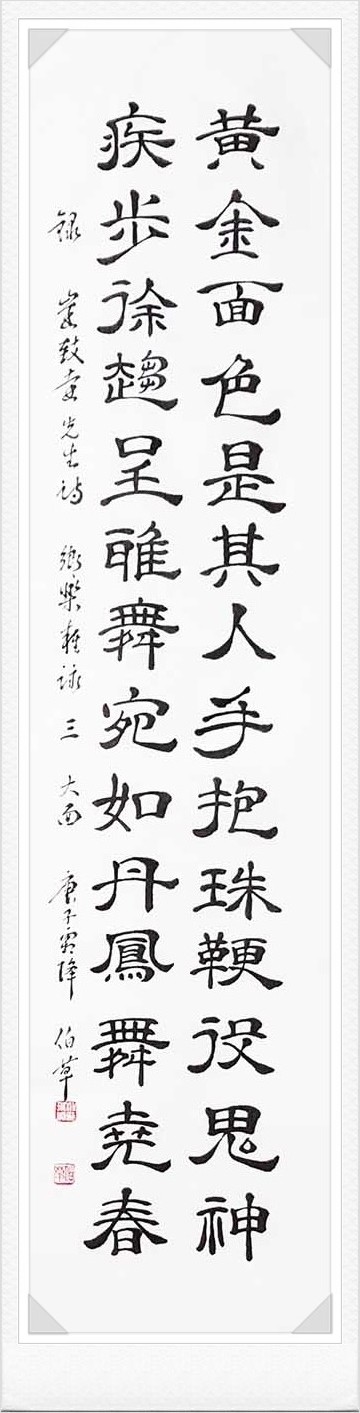 黃金面色是其人手抱珠鞭役鬼神
疾步徐趨呈雅舞宛如丹鳳舞堯春
錄 崔致遠先生詩 鄉樂雜詠 三 大面 庚子霜降 伯草